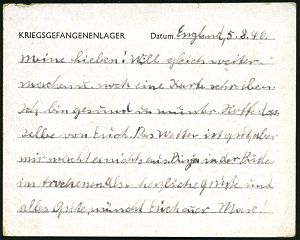 KRIEGSGEFANGENENLAGER Datum England, 5.8.46.
Meine Lieben! Will gleich weiter
machen u. noch eine Karte schreiben
Ich bin gesund u. munter Hoffe das
selbe von Euch. Das Wetter ist gut aber
mir macht es nicht aus in der
im trockenen. Also herzliche Grüße und
alles Gute, wünscht Euch Euer